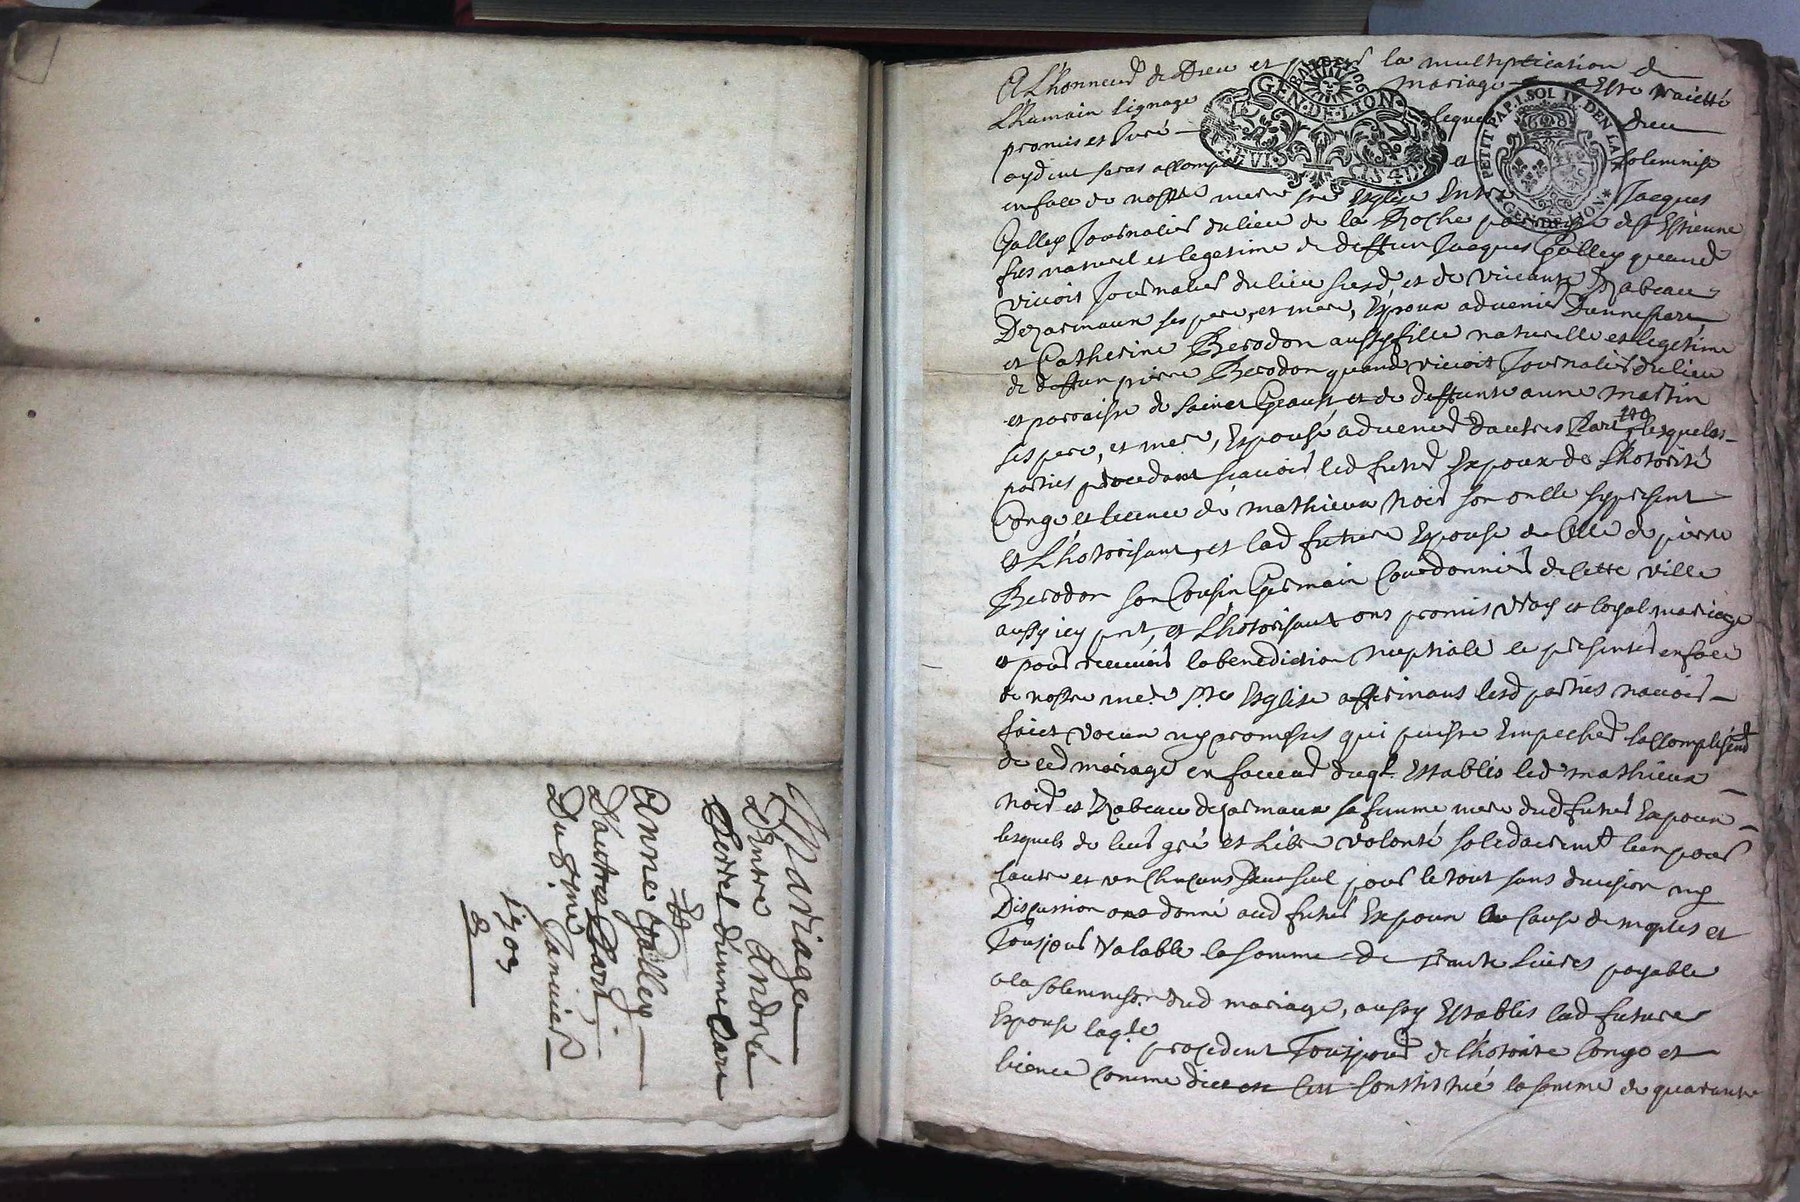 Mariage
Entre André
Perrel d'unne part
Et
Anne Galley
D'autres Part
Du 8me Janvier
1703
8
A L'honneur de Dieu et pour la multiplication de
L'humain lignage mariage a Esté traicté
promis et Juré lequel Dieu
aydant seras accomply et solemnise
en face de nostre mere ste Esglise Entre Jacques
Galley Journalier du lieu de la Roche parroisse de st Estienne
fils naturel et legetime de deffun Jacques Galley quand
vivoit Journalier du lieu susd et de vivante Yzabeau
Dezarmaux ses pere et mere, Espoux advenir D'unne part
et Catherine Berodon aussy fille naturelle et legetime
de deffun pierre Berodon quand vivoit Journalier du lieu
et parroisse de sainct et de deffunte anne martin
ses pere, et mere, Espouse advenir d'autres Part lesquelles
parties procedant scavoir led futur Expoux de L'hotorité
Congé et licence de mathieux Noir son oncle sy present
et L'hotorisant, et lad future Espouse de Celle de pierre
Berodon son Cousin Germain Courdonnier de Cette ville
aussy icy prnt, et L'hotorisant ont promis vray et loyal mariage
et pour recevoir la benediction nuptiale se presenter en face
de nostre mere ste Esglise affirmans lesd parties n'avoir
faict voeux ny promesses qui puisse Empecher laccomplisemt
de ced mariage en faveur duql Establis led mathieux
Noir et Yzabeau dezarmaux sa famme mere dud futur Expoux
lesquels de leur gré et Libre volonté solidairemt l'un pour
l'autre et un chacuns d'eux seul pour le tout sans division ny
Discussion ont donné aud futur Expoux a Cause de nopces et
Tousjour valable la somme de trante Livres payable
a la solemnise dud mariage, aussy Establis lad future
Espouse laqle procedent Tousjour de L'hotorite Congé et
licence comme dict est sest Constitué la somme de quarante
GEN·DE·LION
BAIL DE 1706
PETIT PAP. 1. SOL IV. DEN LA F
GEN·DE·LION